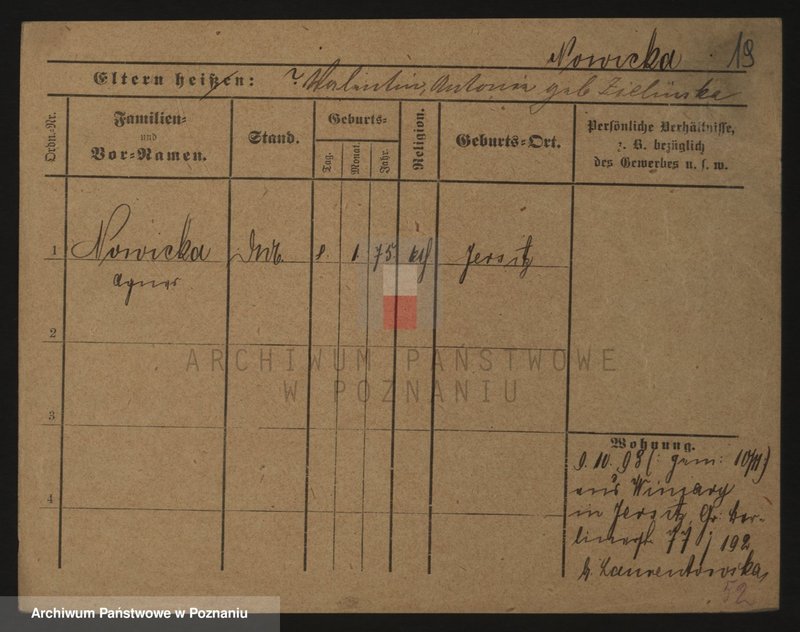 Nowicka 19
Eltern heißen: Valentin, Antonie geb Zielinska
Ordn.-Nr.
Familien-
und
Vor-Namen.
Stand.
Geburts-
Tag.
Monat.
Jahr.
Religion.
Geburts-Ort.
Persönliche Verhältnisse,
z. B. bezüglich
des Gewerbes u. s. w.
1 Nowicka 1. 75 kth Jersitz
Agnes
2
ARCHIWUM PAŃSTWOWE
W POZNANIU
3
Wohnung.
9. 10. 98 (: gem: 10/11)
aus Winiary
in Jersitz, Gr. Ber-
linerst 77 j 192
b. Laurentowska
52
4
Archiwum Państwowe w Poznaniu